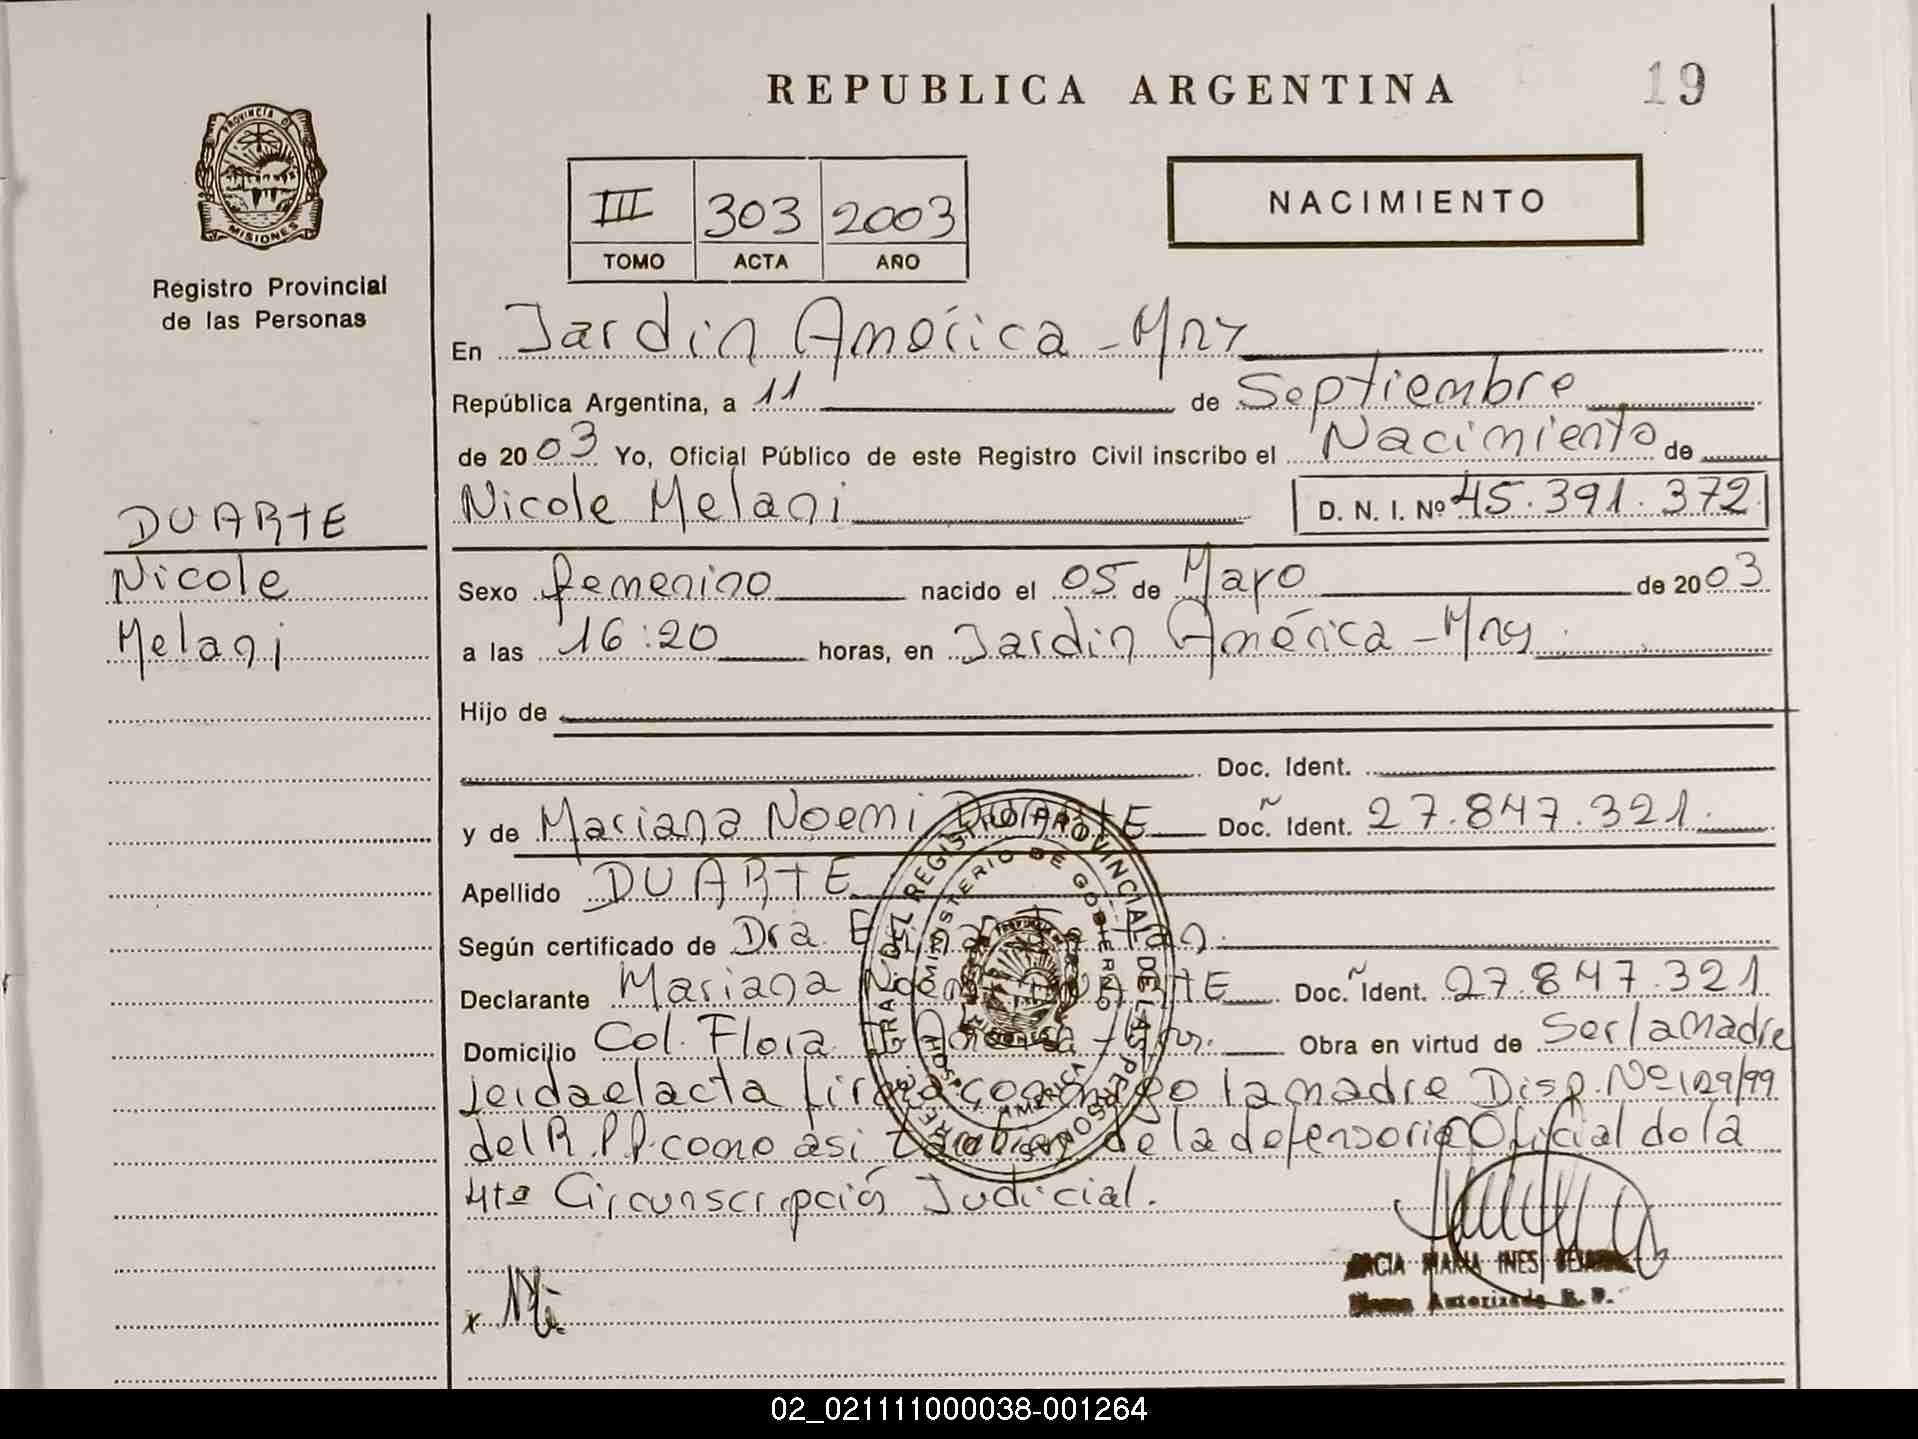 REPUBLICA ARGENTINA
19
PROVINCIA DE
MISIONES
Registro Provincial
de las Personas
III 303 2003
TOMO ACTA AÑO
NACIMIENTO
En Jardin América - Mnes
República Argentina, a 11 de Septiembre
de 2003 Yo, Oficial Público de este Registro Civil inscribo el Nacimiento de
Nicole Melani D. N. I. Nº 45.391.372
DUARTE
Nicole
Melani
Sexo femenino nacido el 05 de Mayo de 2003
a las 16:20 horas, en Jardin América - Mnes
Hijo de
Doc. Ident.
y de Mariana Noemi DUARTE Doc. Ident. 27.847.321
Apellido DUARTE
Según certificado de Dra.
Declarante Mariana Noemi DUARTE Doc. Ident. 27.847.321
Domicilio Col. Flora Obra en virtud de Ser la madre
Leida el acta firma conmigo la madre Disp. Nº 129/99
del R.P.P. como asi tambien de la defensoria Oficial de la
4ta Circunscripción Judicial.
MARIA INES
Autorizada
x
02_021111000038-001264